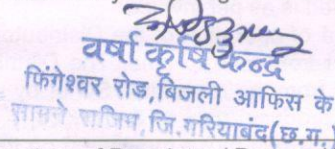 वर्षा कृषि केन्द्र
फिंगेश्वर रोड,बिजली आफिस के
सामने राजिम,जि.गरियाबंद(छ.ग.)